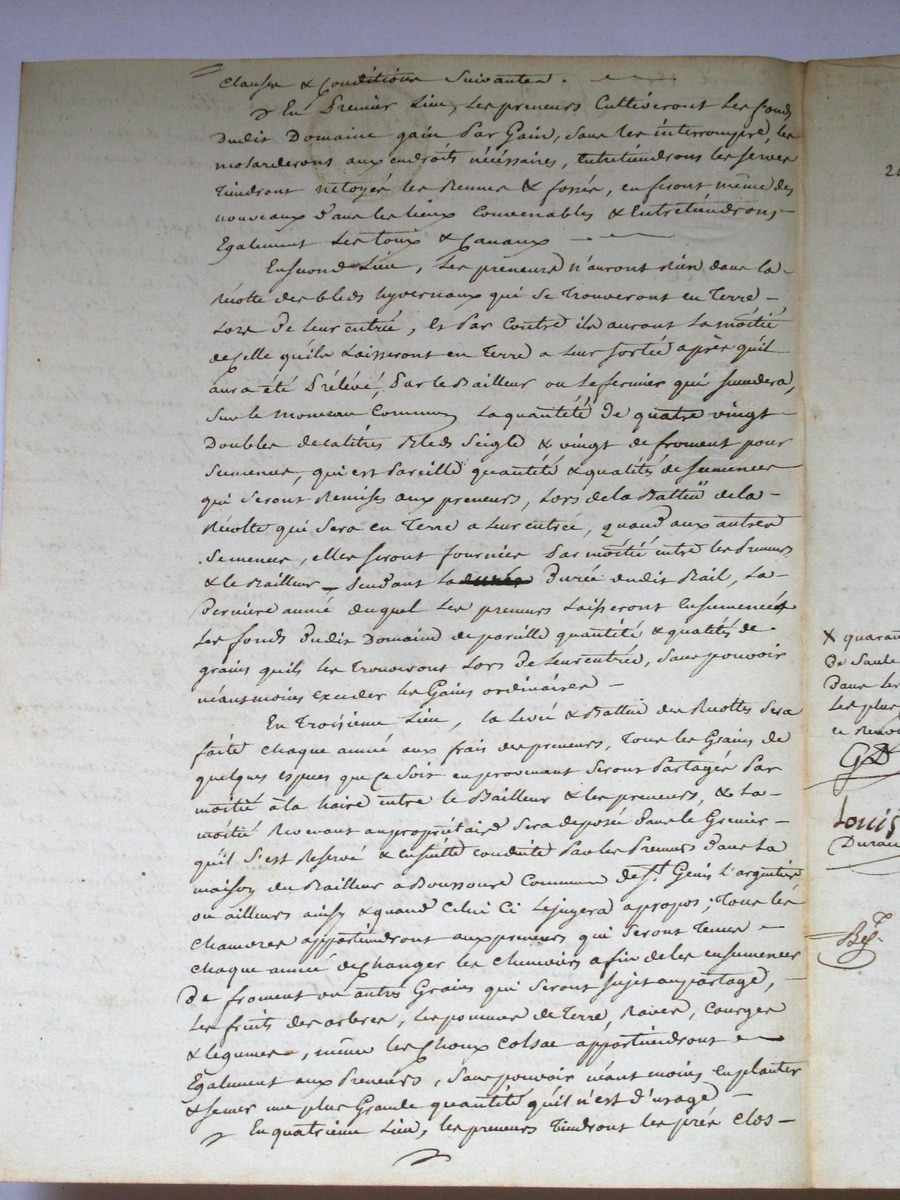 Clauses & Conditions Suivantes.
En Premier Lieu, Les preneurs Cultiveront Les fonds
Dudit Domaine gain Par Gain, Sans les interrompre, les
mosarderont aux endroits nécéssaires, Entretiendrons les serves
Tiendront netoyés les Rennes & fossés, en feront même des
nouveaux Dans les lieux Convenables & Entretiendrons
Egalement Les toux & Canaux
En Second Lieu, Les preneurs n'auront Rien dans la
Récolte des bleds hyvernaux qui Se trouveront en Terre
Lors De leur entrée, Et Par Contre ils auront La moitié
de Celle qu'ils Laisseront en Terre a Leur Sortie après qu'il
aura été Prélévé, Par le Bailleur ou Le fermier qui Succèdera,
Sur le Monceau Commun La quantité De quatre vingt
Doubles decalitres Bleds Seigle & vingt de froment pour
Semences, qui est Pareille quantité & qualités de Semences
qui Seront Remises aux preneurs, Lors de la Battue de la
Récolte qui Sera en Terre a Leur entrée, quand aux autres
Semences, elles Seront fournies Par moitié entre les Preneurs
& le Bailleur Pendant La Durée dudit Bail, La
Derniere année duquel Les preneurs Laisseront Ensemencés
Les fonds Dudit Domaine de pareille quantité & qualités de
grains qu'ils les Trouveront Lors De Leur entrée, Sans pouvoir
néantmoins exceder les Gains ordinaires
En Troisieme Lieu, la Levée & Battue des Recoltes Sera
faite chaque année aux frais des preneurs, Tous les Grains de
quelques espèces que Ce Soit en provenant Seront Partagés Par
moitié à la haire entre le Bailleur & les preneurs, & La
moitié Revenant au propriétaire Sera déposée Dans le Grenier
qu'il S'est Reservé & Ensuitte conduite Par les Preneurs Dans La
maison du Bailleur a Boussoure Commune de St. Genis L'argentiere
ou ailleurs ainsy & quand Celui Ci Le jugera a propos; Tous les
Chanvres appartiendront aux preneurs qui Seront Tenus
chaque année de Changer les Chenevoirs afin de les ensemencer
De froment ou autres Grains qui Seront Sujet au partage,
Les fruits des arbres, Les pommes de Terre, Raves, Courges
& Legumes, même les Choux Colsac appartiendront
Egalement aux Preneurs, Sans pouvoir néant moins en planter
& Semer une plus Grande quantité qu'il n'est D'usage
En quatrieme Lieu, les preneurs Tiendront les prés Clos
X quaran
De Saule
Dans les
Les plus
ce Renvoi
GD
Louis
Duran